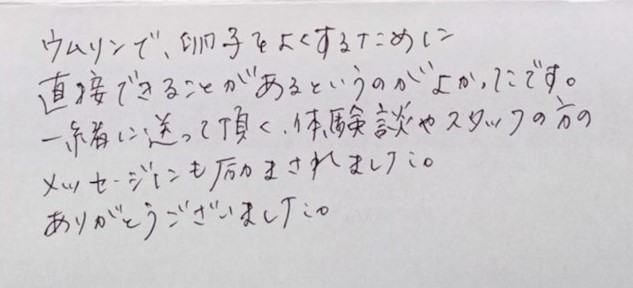 ウムリンで、卵子をよくするために
直接できることがあるというのがよかったです。
一緒に送って頂く、体験談やスタッフの方の
メッセージにも励まされました。
ありがとうございました。